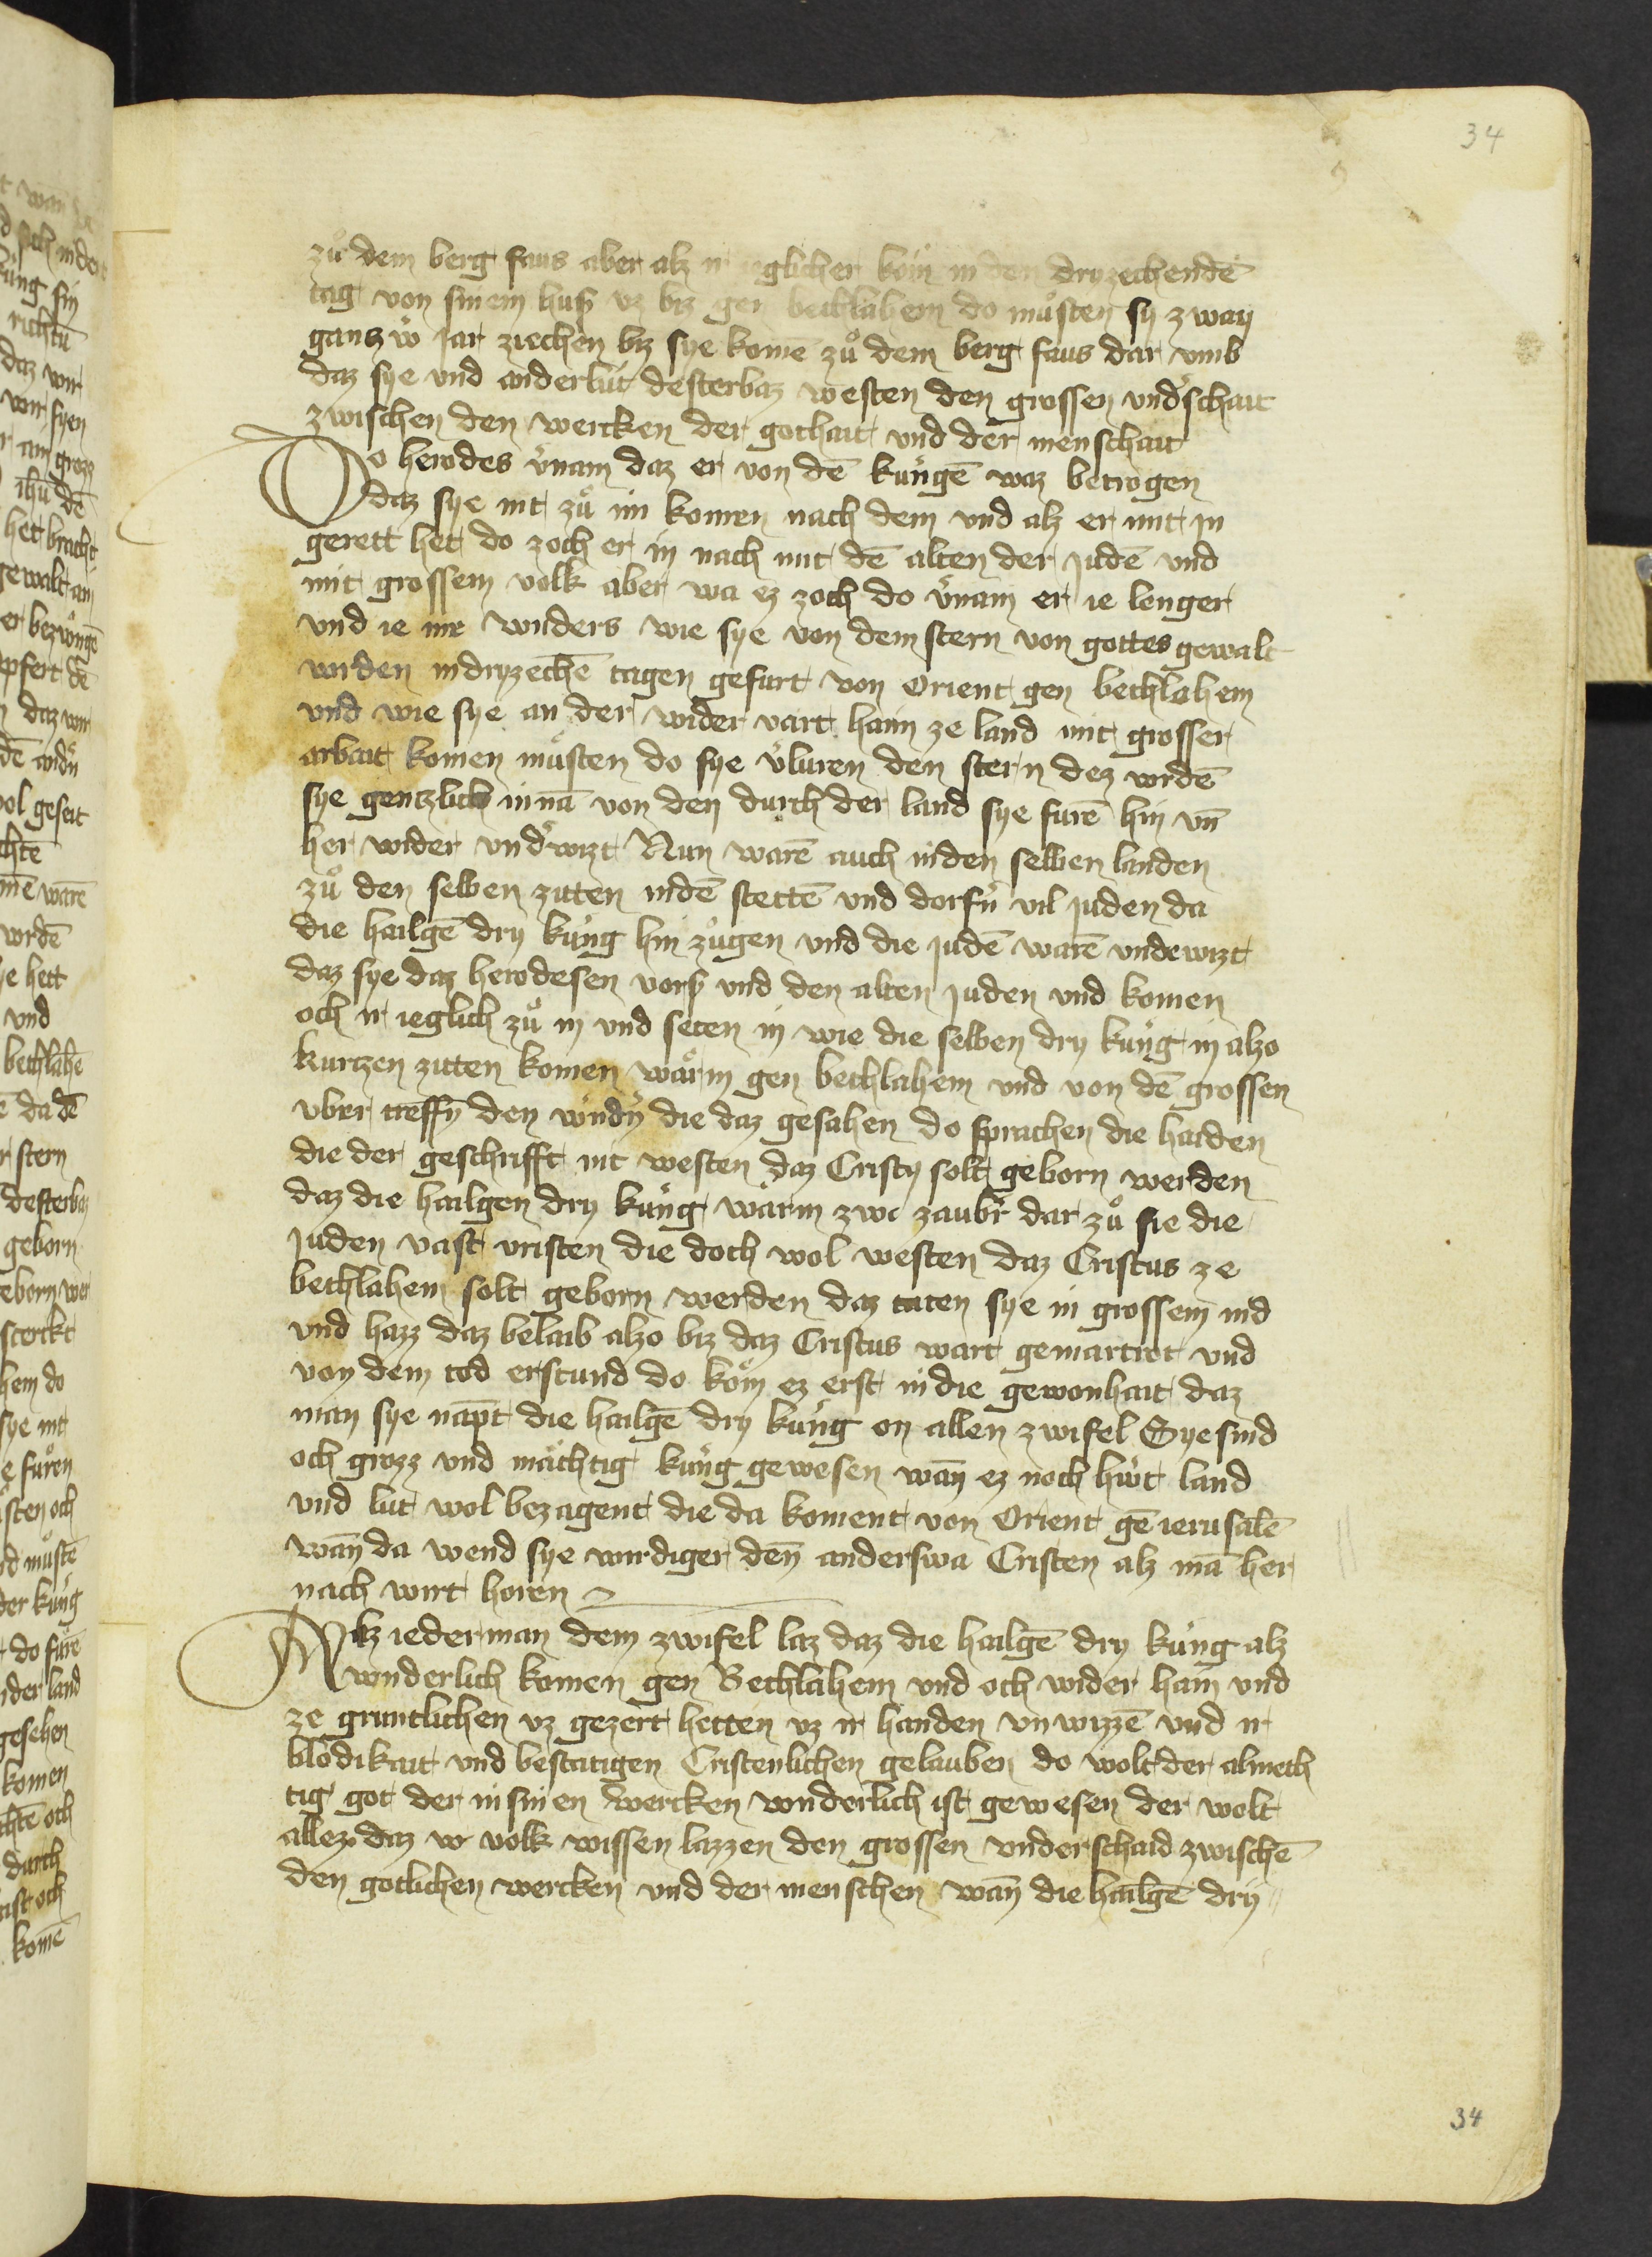 34
zuͦ dem berg faus aber alz ir ieglicher kom in den dryzechendē
tag von sinem hus vz biz gen bechlahem do muͦsten sy zway
gantzv̈ Jar ziechen biz sye komē zuͦ dem berg faus dar vmb
daz sye vnd anderlüt desterbaz westen den grossen vnd͛schait
zwischen den wercken der gothait vnd der menschait
Do herodes v͛nam daz er von dē kungē waz betrogen
daz sye nit zuͦ im komen nach dem vnd alz er mit in
gerett het do zoch er in nach mit dē alten der judē vnd
mit grossem volk aber wa ez zoch do v͛nam er ie lenger
vnd ie me wnders wie sye von dem stern von gottes gewalt
wrden in dryzechē tagen gefurt von Orient gen bechlahem
vnd wie sye an der wider vart haim ze land mit grosser
arbait komen muͦsten do sye v͛luren den stern dez wrdē
sye gentzlich innā von den durch der land sye furē hin vn̄
her wider vnd͛wizt Nun warē auch in den selben landen
zuͦ den selben zitten in dē stettē vnd dorfrn̄ vil juden da
die hailgē dry küng hin zugen vnd die judē warē vndewizt
daz sye daz herodesen vorß vnd den alten juden vnd komen
och ir ieglich zuͦ in vnd seten in wie die selben dry küng in alzo
kurtzen zitten komen warin gen bechlahem vnd von dē grossen
vber treffn̄ den wndn̄ die daz gesahen do sprachen die haiden
die der geschrifft nit westen daz Cristy solt geborn werden
daz die hailgen dry küng warin zwe zaubr͛ dar zuͦ sie die
juden vast vristen die doch wol westen daz Cristus ze
bechlahem solt geborn werden daz taten sye in grossem nid
vnd hazz daz belaib alzo biz daz Cristus wart gemartrot vnd
von dem tod erstund do kom ez erst in die gewonhait daz
man sye napt die hailgē dry küng on allen zwifel Sye sind
och grozz vnd mächtig küng gewesen wan̄ ez noch hüt land
vnd lüt wol bezagent die da koment von Orient gē ierusalē
wan̄ da wend sye wirdiger den̄ anderswa Cristen alz mā her
nach wirt horen
Biz iederman dem zwifel laz daz die hailgē dry küng alz
wnderlich komen gen Bechlahem vnd och wider haim vnd
ze gruntlichen vz gezert hetten vz ir handen vnwizzē vnd ir
blodikait vnd bestatigen Cristenlichen gelauben do wolt der almech
tig got der in sinen wercken wnderlich ist gewesen der wolt
allez daz vr volk wissen lazzen den grossen vnderschaid zwischē
den gotlichen wercken vnd der menschen wan̄ die hailgē dry
34